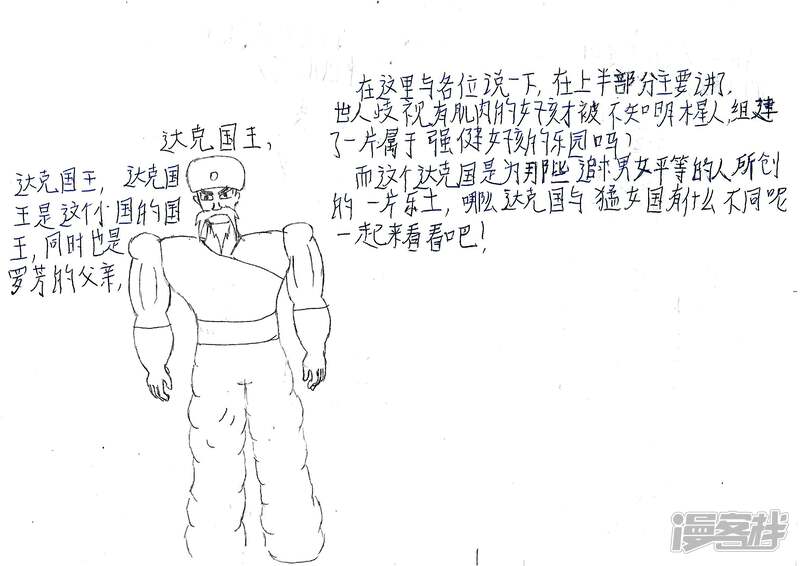 达克国王，
达克国王，达克国
王是这个国的国
王，同时也是
罗芳的父亲，
在这里与各位说一下，在上半部分主要讲了，
世人歧视有肌肉的女孩才被不知明木星人，组建
了一片属于强健女孩的乐园吗？
而这个达克国是为那些追求男女平等的人所创
的一片乐土，哪么达克国与猛女国有什么不同呢
一起来看看吧！
1
漫客栈